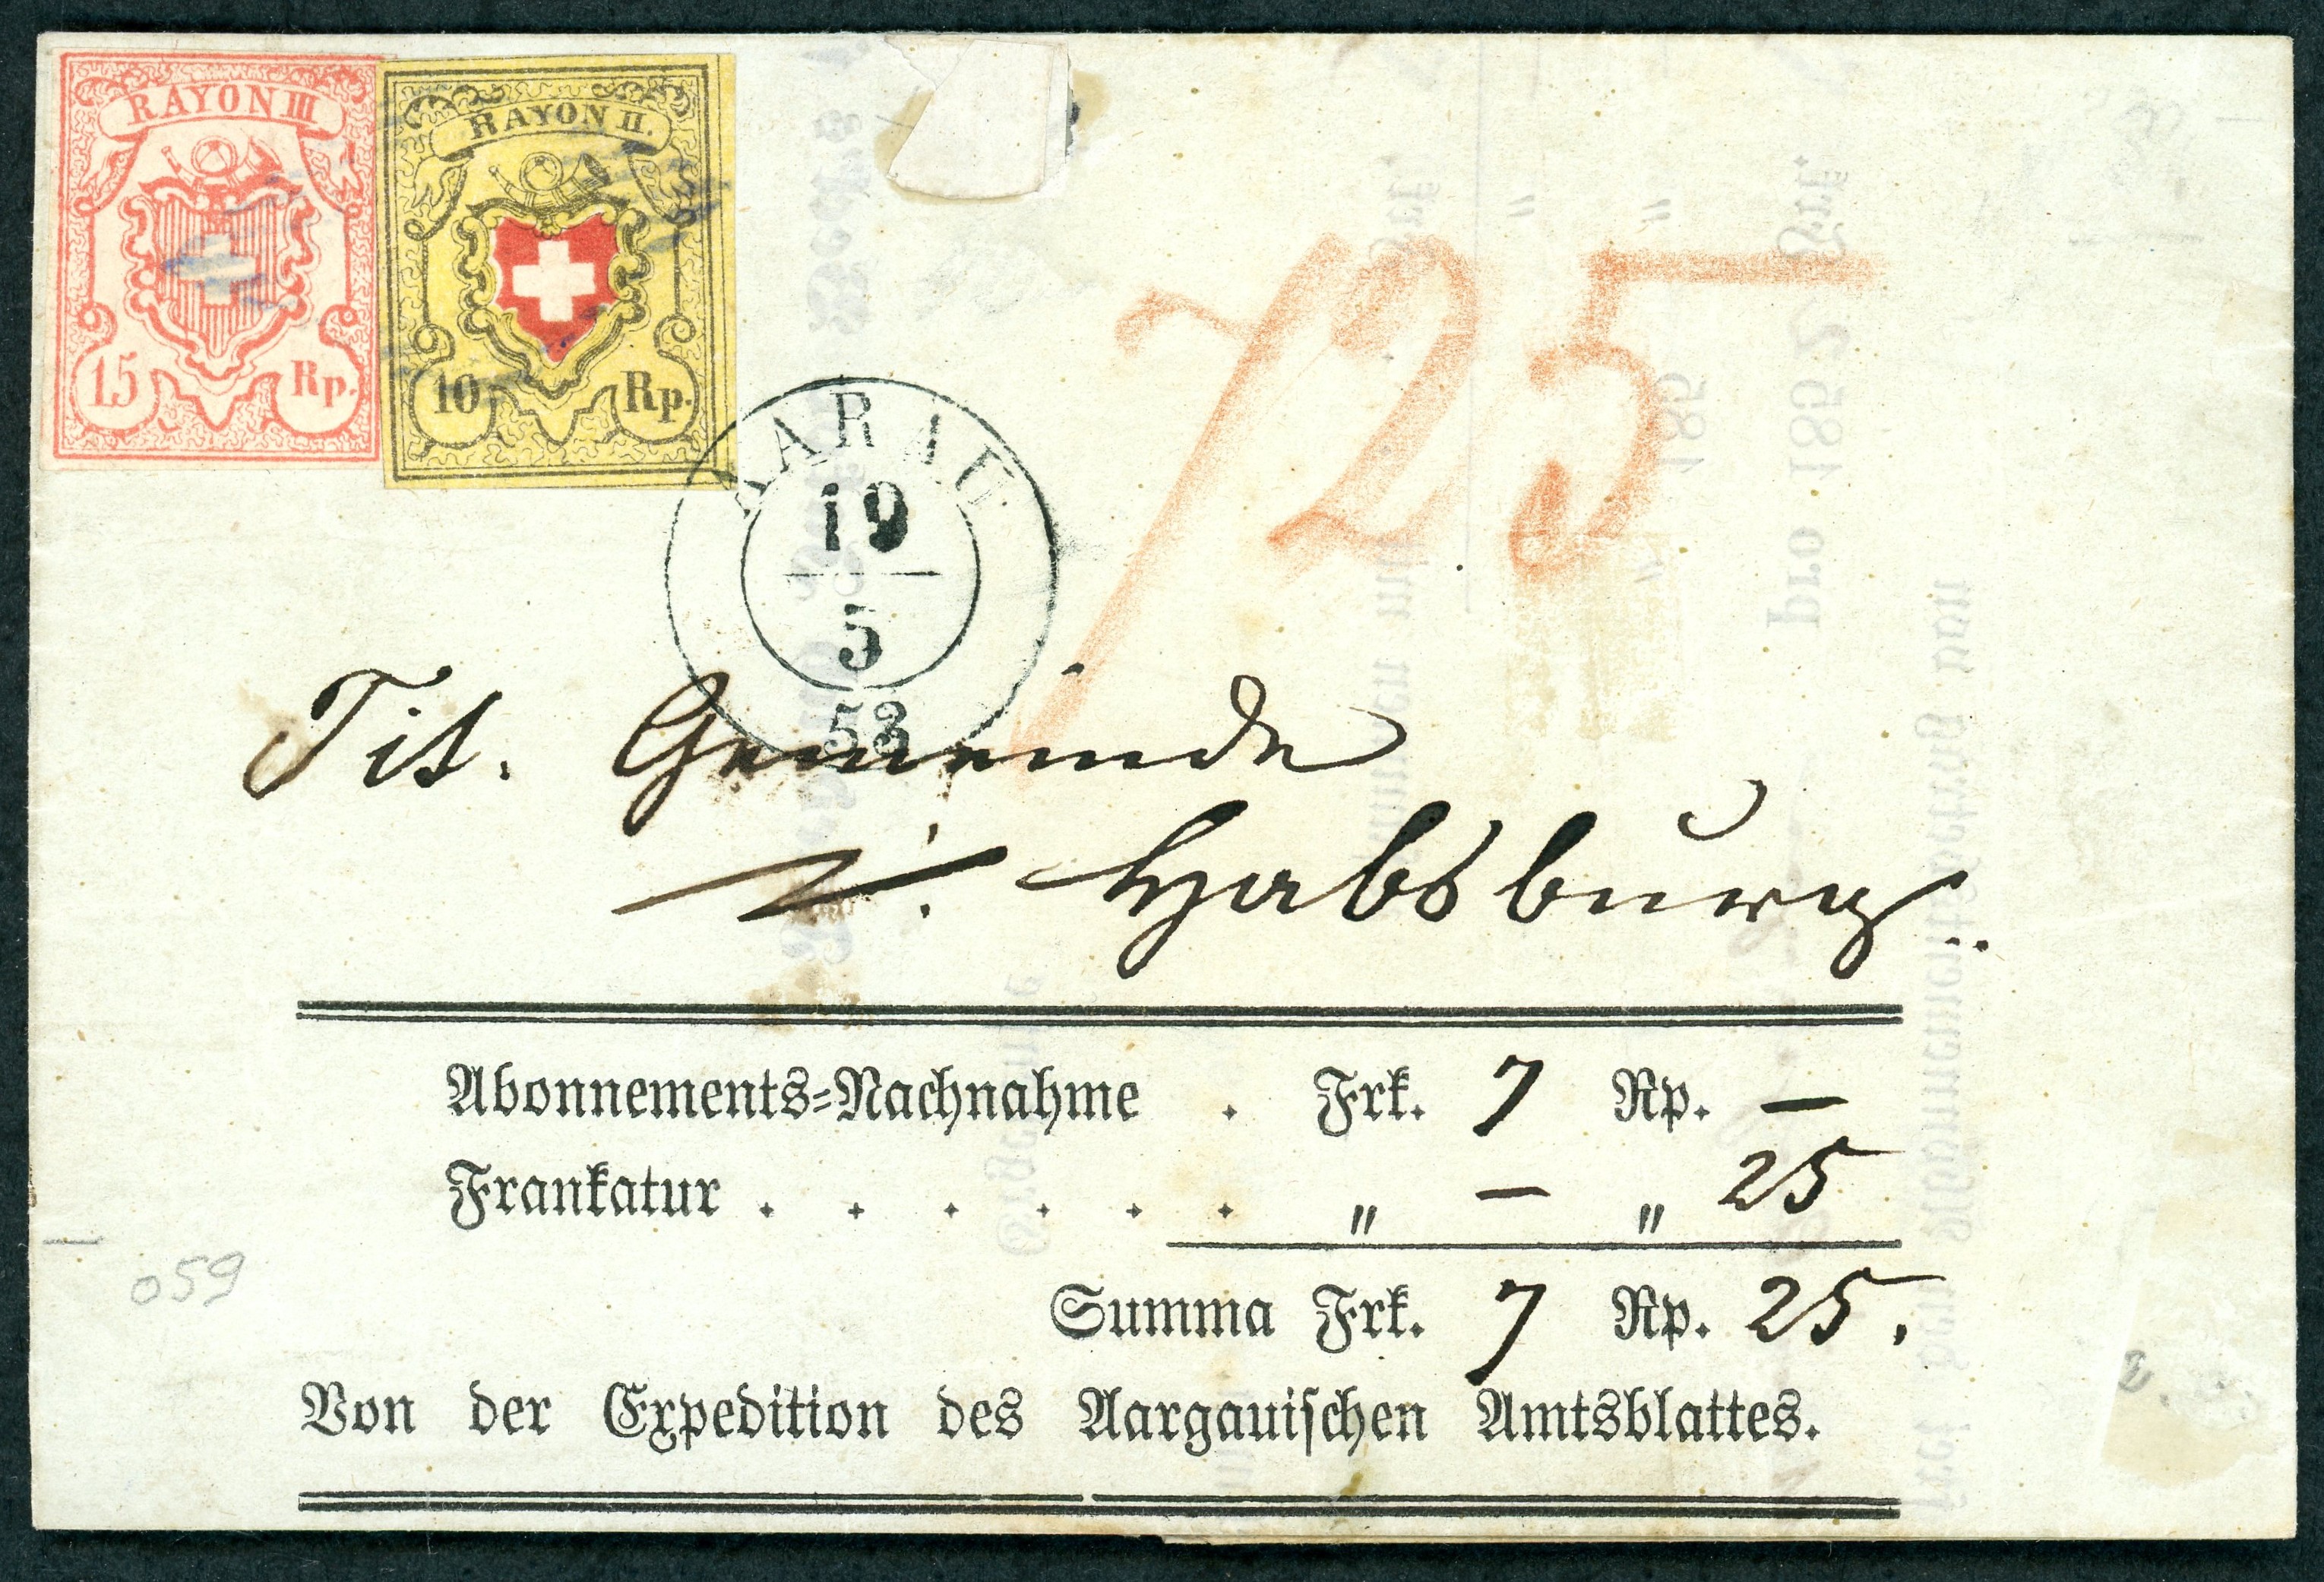 RAYON III
15 Rp.
RAYON II.
10 Rp.
AARAU
19
5
53
725
Tit. Gemeinde
Habsburg
Abonnements=Nachnahme . Frk. 7 Rp. —
Frankatur . . . . . . „ — „ 25
Summa Frk. 7 Rp. 25.
Von der Expedition des Aargauischen Amtsblattes.
059